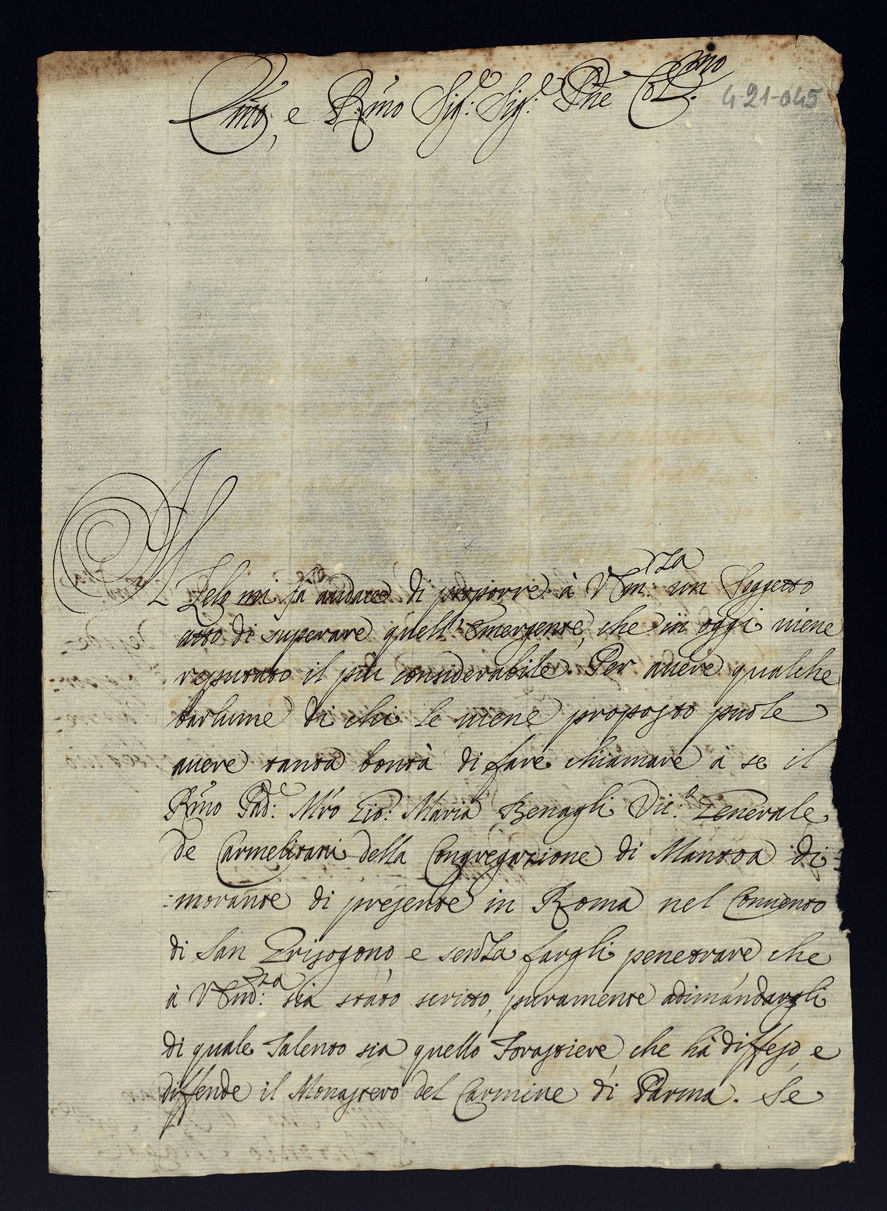 Emo, e Rmo Sig.r Sig.r Pne Colmo
421-045
Il Zelo mi fa audace di proporre à V Em.za un Soggetto
atto di superare quell'Emergente, che in oggi viene
reputato il più considerabile. Per avere qualche
barlume di chi le viene proposto puole
avere tanta bontà di fare chiamare à se il
Rmo Pad.e Mro Gio: Maria Benagli Vic.o Generale
de Carmelitani della Congregazione di Mantoa di-
:morante di presente in Roma nel Convento
di San Grisogono, e senza fargli penetrare che
à V Em.za sia stato scritto, puramente adimandargli
di quale Talento sia quello Forastiere che hà diffeso, e
diffende il Monastero del Carmine di Parma. Se